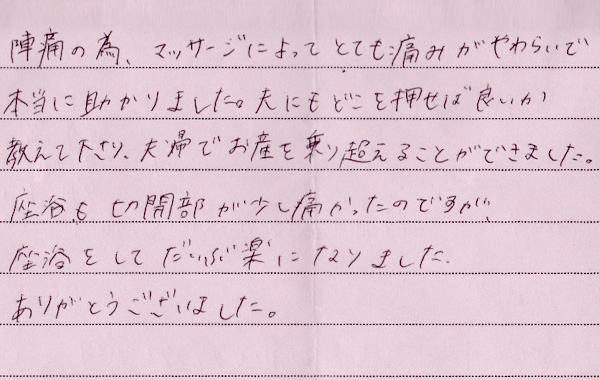 陣痛の為、マッサージによってとても痛みがやわらいで
本当に助かりました。夫にもどこを押せば良いか
教えて下さり、夫婦でお産を乗り超えることができました。
座浴も切開部が少し痛かったのですが、
座浴をしてだいぶ楽になりました.
ありがとうございました。